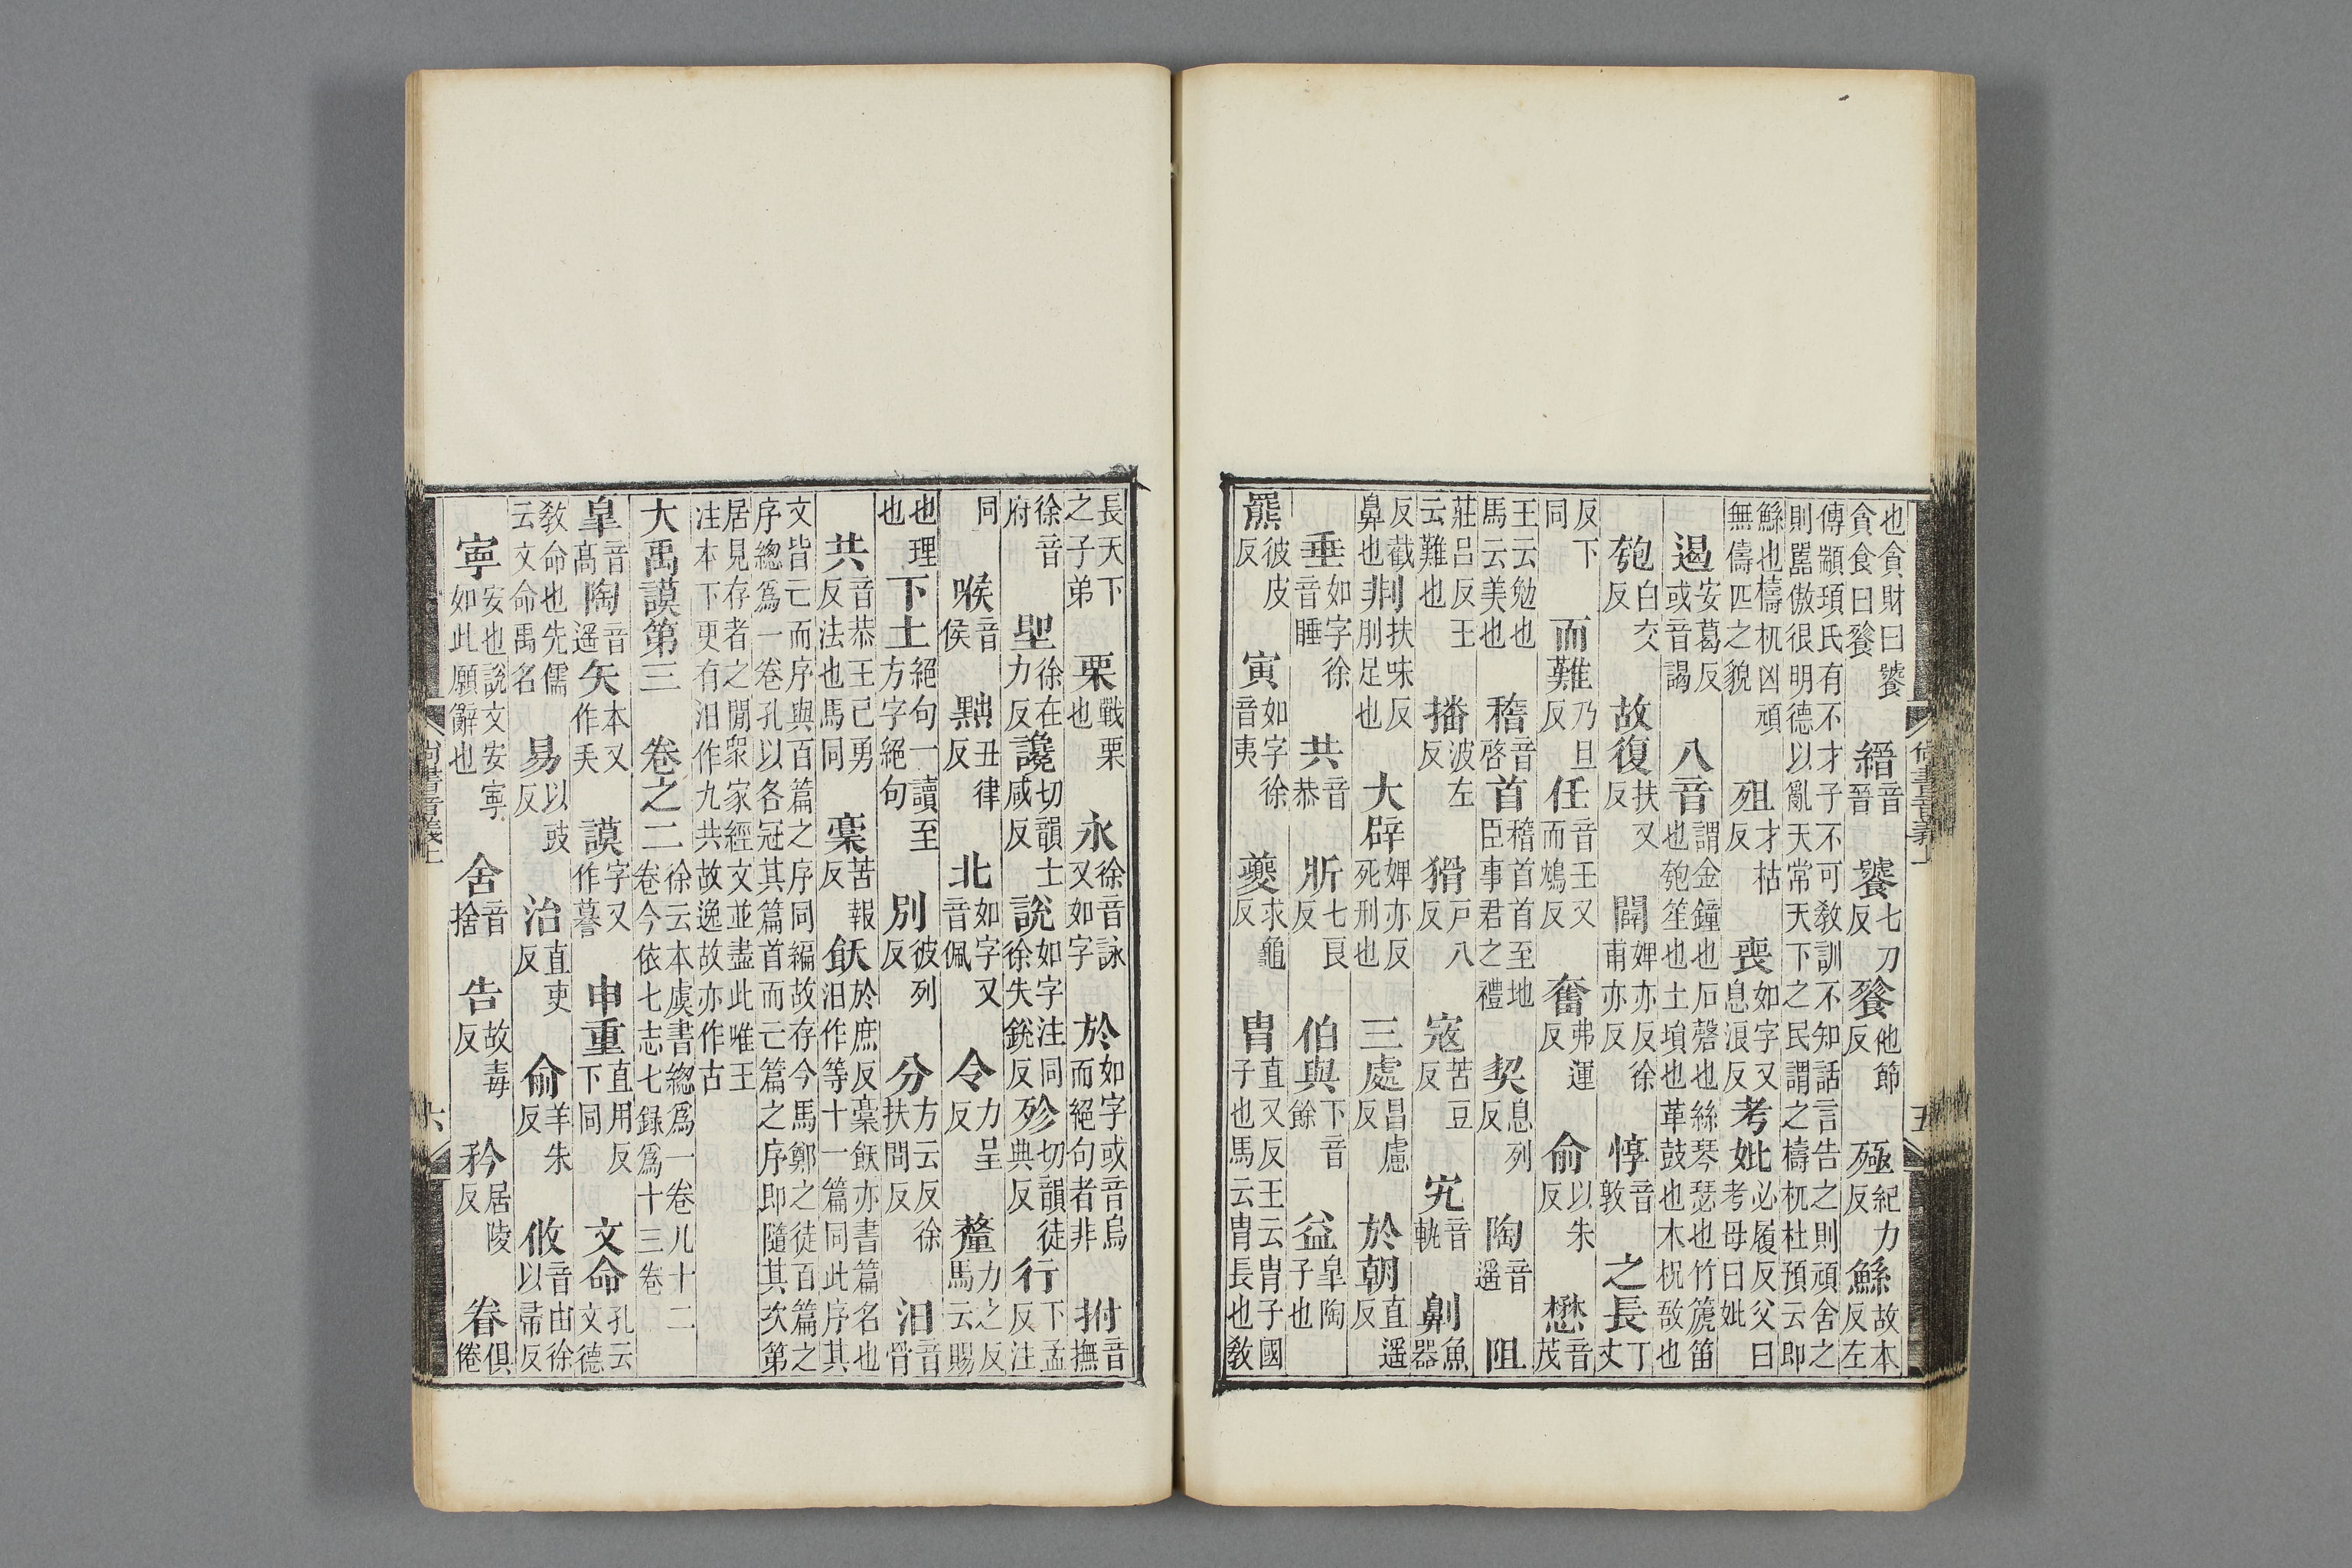 尚書音義上
五
也貪財曰饕貪食曰餮 縉音晉 饕七刀反 餮他節反 殛紀力反 鯀故本反左
傳顓頊氏有不才子不可敎訓不知話言告之則頑舍之則嚚傲很明德以亂天常天下之民謂之檮杌杜預云即
鯀也檮杌凶頑無儔匹之貌 殂才枯反 喪如字又息浪反 考妣必履反父曰考母曰妣
遏安葛反或音謁 八音謂金鐘也石磬也絲琴瑟也竹箎笛也匏笙也土塤也革鼓也木柷敔也
匏白交反 故復扶又反 闢婢亦反徐甫亦反 惇音敦 之長丁丈
反下同 而難乃旦反 任音壬又而鴆反 奮弗運反 俞以朱反 懋音茂
王云勉也馬云美也 稽音啓 首稽首首至地臣事君之禮 契息列反 陶音遥 阻
莊呂反王云難也 播波左反 猾戸八反 寇苦豆反 宄音軌 劓魚器
反截鼻也 剕扶味反刖足也 大辟婢亦反死刑也 三處昌慮反 於朝直遥反
垂如字徐音睡 共音恭 斨七良反 伯與下音餘 益皐陶子也
羆彼皮反 寅如字徐音夷 夔求龜反 胄直又反王云胄子國子也馬云胄長也敎
長天下之子弟 栗戰栗也 永徐音詠又如字 於如字或音烏而絕句者非 拊音撫
徐音府 堲徐在力反 讒切韻士咸反 說如字注同徐失銳反 殄切韻徒典反 行下孟反注
同 喉音侯 黜丑律反 北如字又音佩 令力呈反 釐力之反馬云賜
也理也 下土絕句一讀至方字絕句 別彼列反 分方云反徐扶問反 汩音骨
共音恭王己勇反法也馬同 稾苦報反 飫於庶反稾飫亦書篇名也汩作等十一篇同此序其
文皆亡而序與百篇之序同編故存今馬鄭之徒百篇之序總爲一卷孔以各冠其篇首而亡篇之序即隨其次第
居見存者之閒衆家經文並盡此唯王注本下更有汩作九共故逸故亦作古
大禹謨第三 卷之二 徐云本虞書總爲一卷凡十二卷今依七志七録爲十三卷
皐音髙 陶音遥 矢本又作 謨字又作 申重直用反下同 文命孔云文德
敎命也先儒云文命禹名 易以豉反 治直吏反 俞羊朱反 攸音由徐以帚反
寧安也說文安寧如此願辭也 舍音捨 告故毒反 矜居陵反 眷俱倦
尚書音義上
六